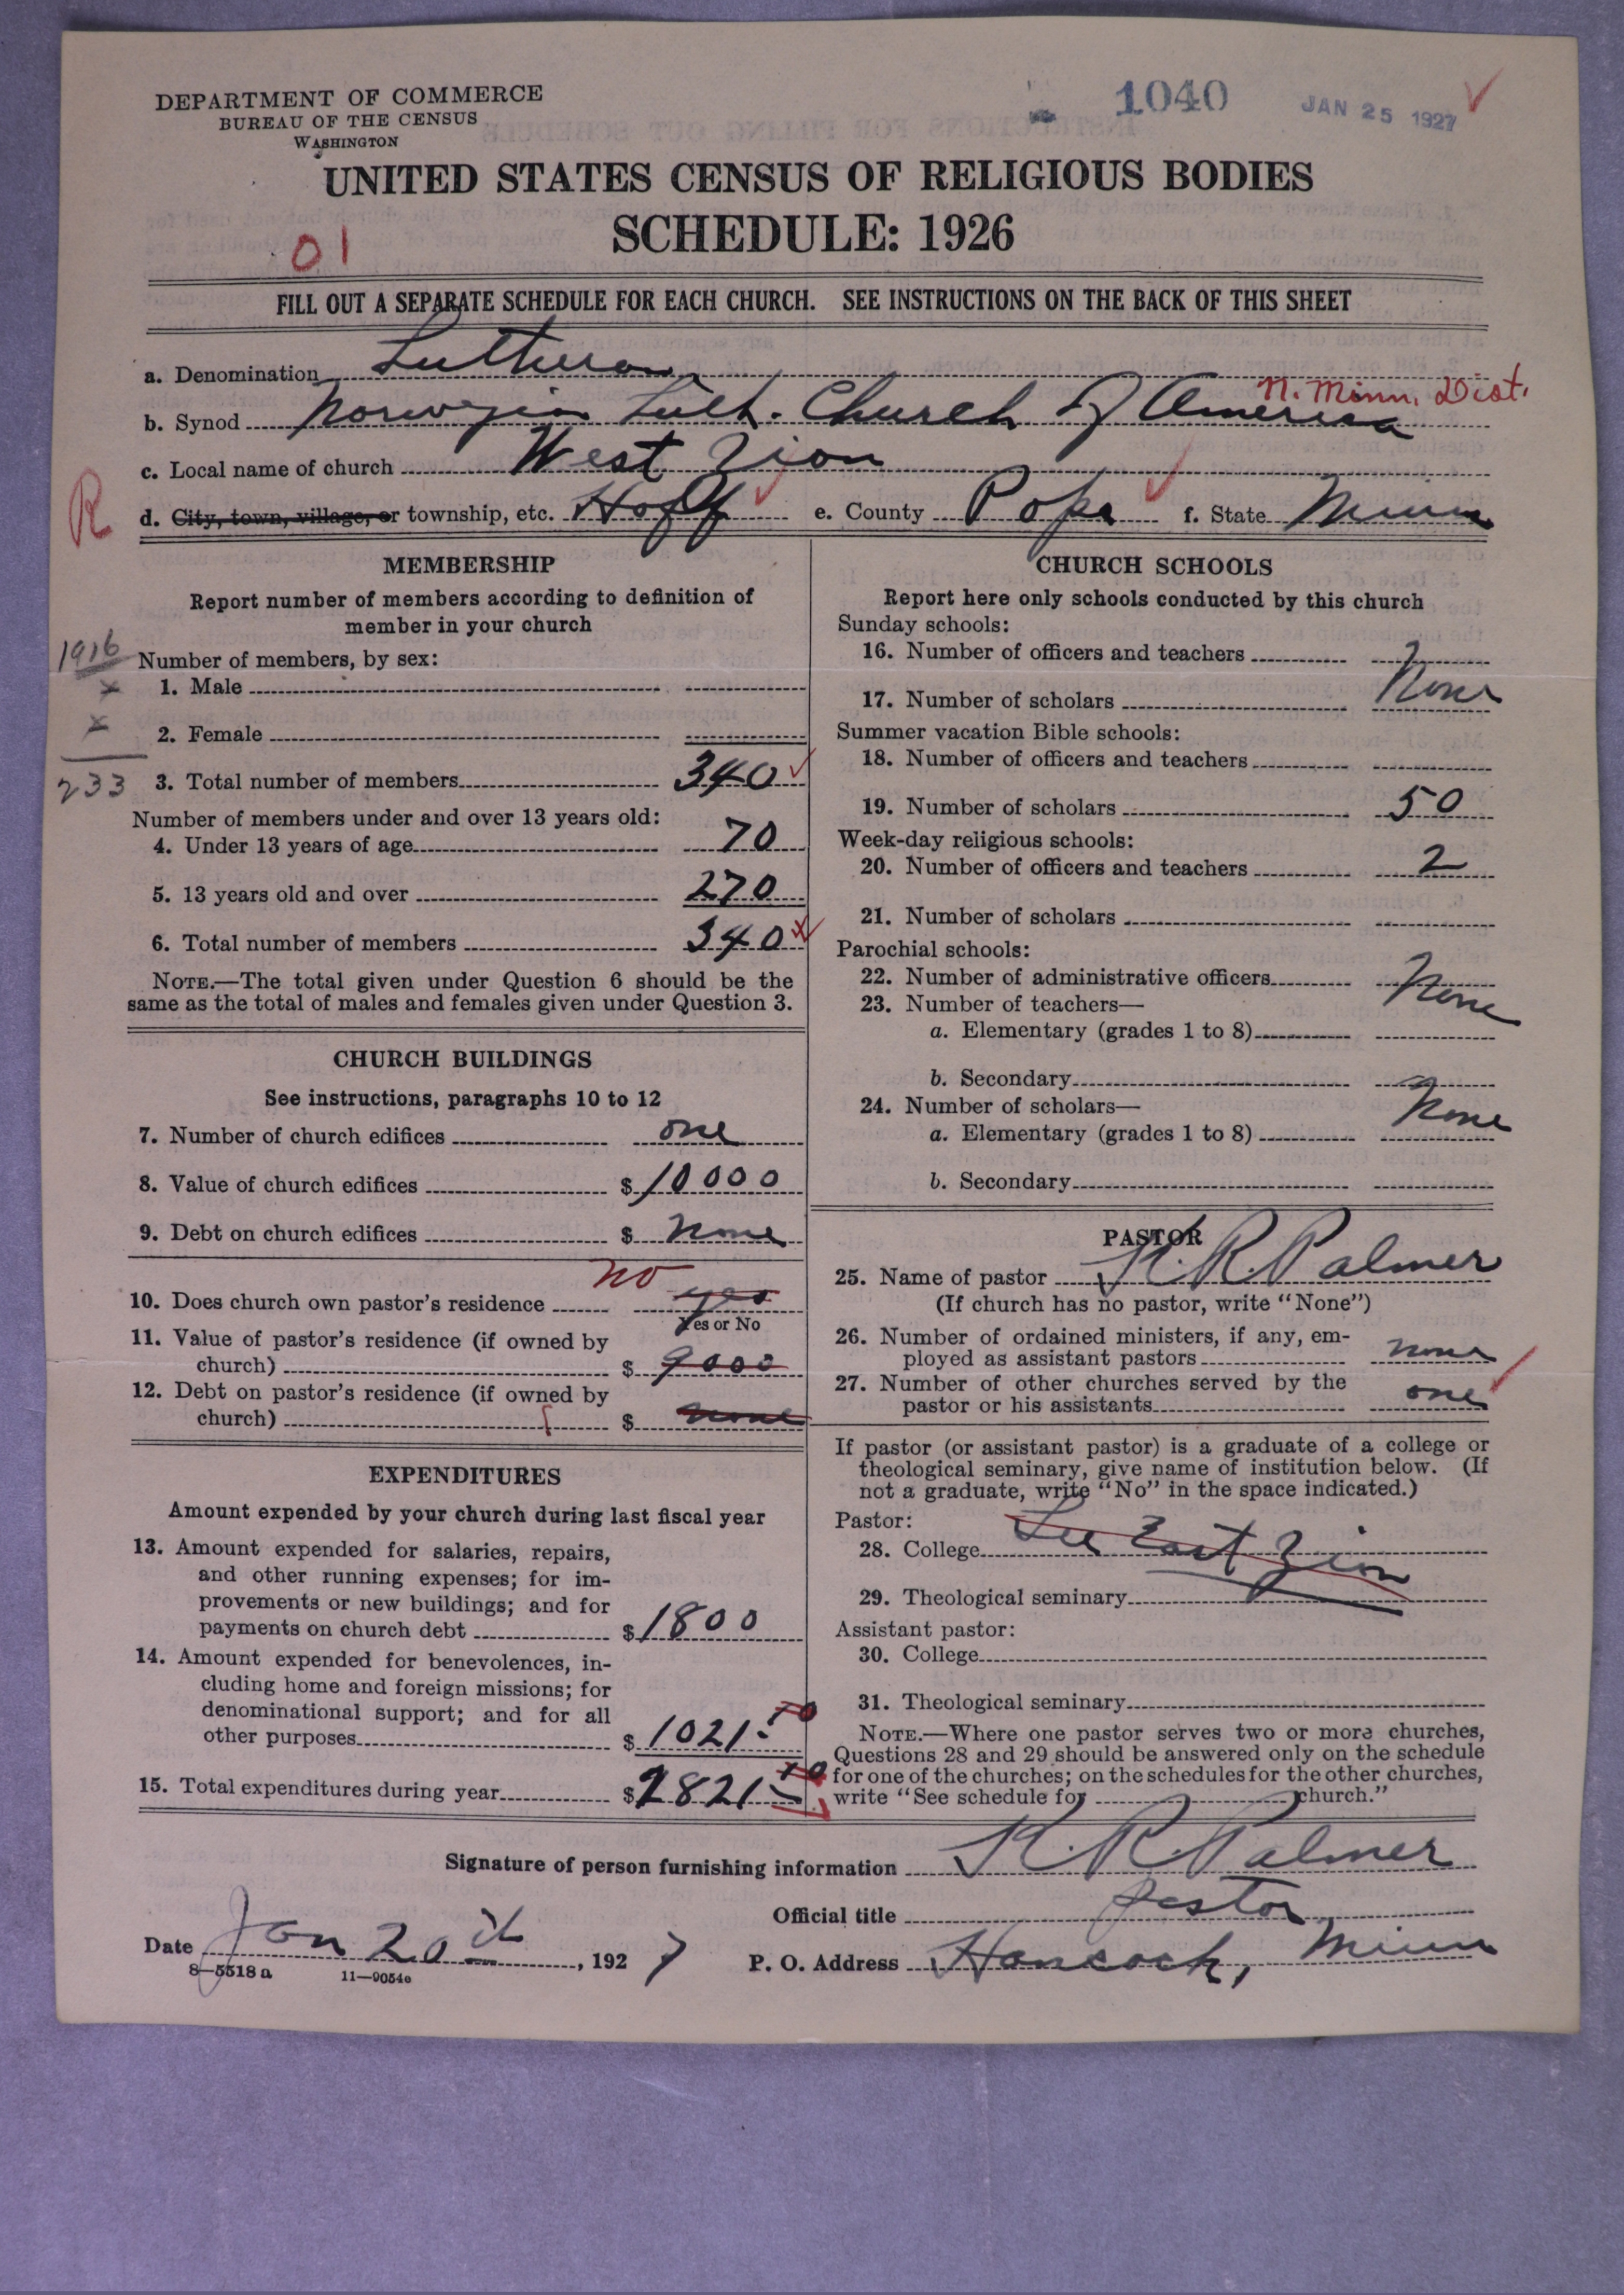 DEPARTMENT OF COMMERCE
BUREAU OF THE CENSUS
WASHINGTON
1040
JAN 25 1927
UNITED STATES CENSUS OF RELIGIOUS BODIES
SCHEDULE: 1926
01
FILL OUT A SEPARATE SCHEDULE FOR EACH CHURCH. SEE INSTRUCTIONS ON THE BACK OF THIS SHEET
a. Denomination Lutheran
N. Minn. Dist.
b. Synod Norwegian Luth. Church of America
c. Local name of church West Zion
R
d. City, town, village, or township, etc. Hoff e. County Pope f. State Minn
MEMBERSHIP
Report number of members according to definition of
member in your church
1916
Number of members, by sex:
x 1. Male
x 2. Female
233 3. Total number of members 340
Number of members under and over 13 years old:
4. Under 13 years of age 70
5. 13 years old and over 270
6. Total number of members 340
NOTE.—The total given under Question 6 should be the
same as the total of males and females given under Question 3.
CHURCH BUILDINGS
See instructions, paragraphs 10 to 12
7. Number of church edifices one
8. Value of church edifices $10000
9. Debt on church edifices $ none
no
10. Does church own pastor's residence yes
Yes or No
11. Value of pastor's residence (if owned by
church) $ 9000
12. Debt on pastor's residence (if owned by
church) $ none
EXPENDITURES
Amount expended by your church during last fiscal year
13. Amount expended for salaries, repairs,
and other running expenses; for im-
provements or new buildings; and for
payments on church debt $1800
14. Amount expended for benevolences, in-
cluding home and foreign missions; for
denominational support; and for all
other purposes $1021.70
15. Total expenditures during year $2821.70
CHURCH SCHOOLS
Report here only schools conducted by this church
Sunday schools:
16. Number of officers and teachers
17. Number of scholars None
Summer vacation Bible schools:
18. Number of officers and teachers
19. Number of scholars 50
Week-day religious schools:
20. Number of officers and teachers 2
21. Number of scholars
Parochial schools:
22. Number of administrative officers None
23. Number of teachers—
a. Elementary (grades 1 to 8)
b. Secondary
24. Number of scholars—
a. Elementary (grades 1 to 8) None
b. Secondary
PASTOR
25. Name of pastor K. R. Palmer
(If church has no pastor, write "None")
26. Number of ordained ministers, if any, em-
ployed as assistant pastors none
27. Number of other churches served by the
pastor or his assistants one
If pastor (or assistant pastor) is a graduate of a college or
theological seminary, give name of institution below. (If
not a graduate, write "No" in the space indicated.)
Pastor:
28. College See East Zion
29. Theological seminary
Assistant pastor:
30. College
31. Theological seminary
NOTE.—Where one pastor serves two or more churches,
Questions 28 and 29 should be answered only on the schedule
for one of the churches; on the schedules for the other churches,
write "See schedule for church."
Signature of person furnishing information K. R. Palmer
Official title pastor
Date Jan 20th, 1927 P. O. Address Hancock, Minn
8—5518 a 11—9054e